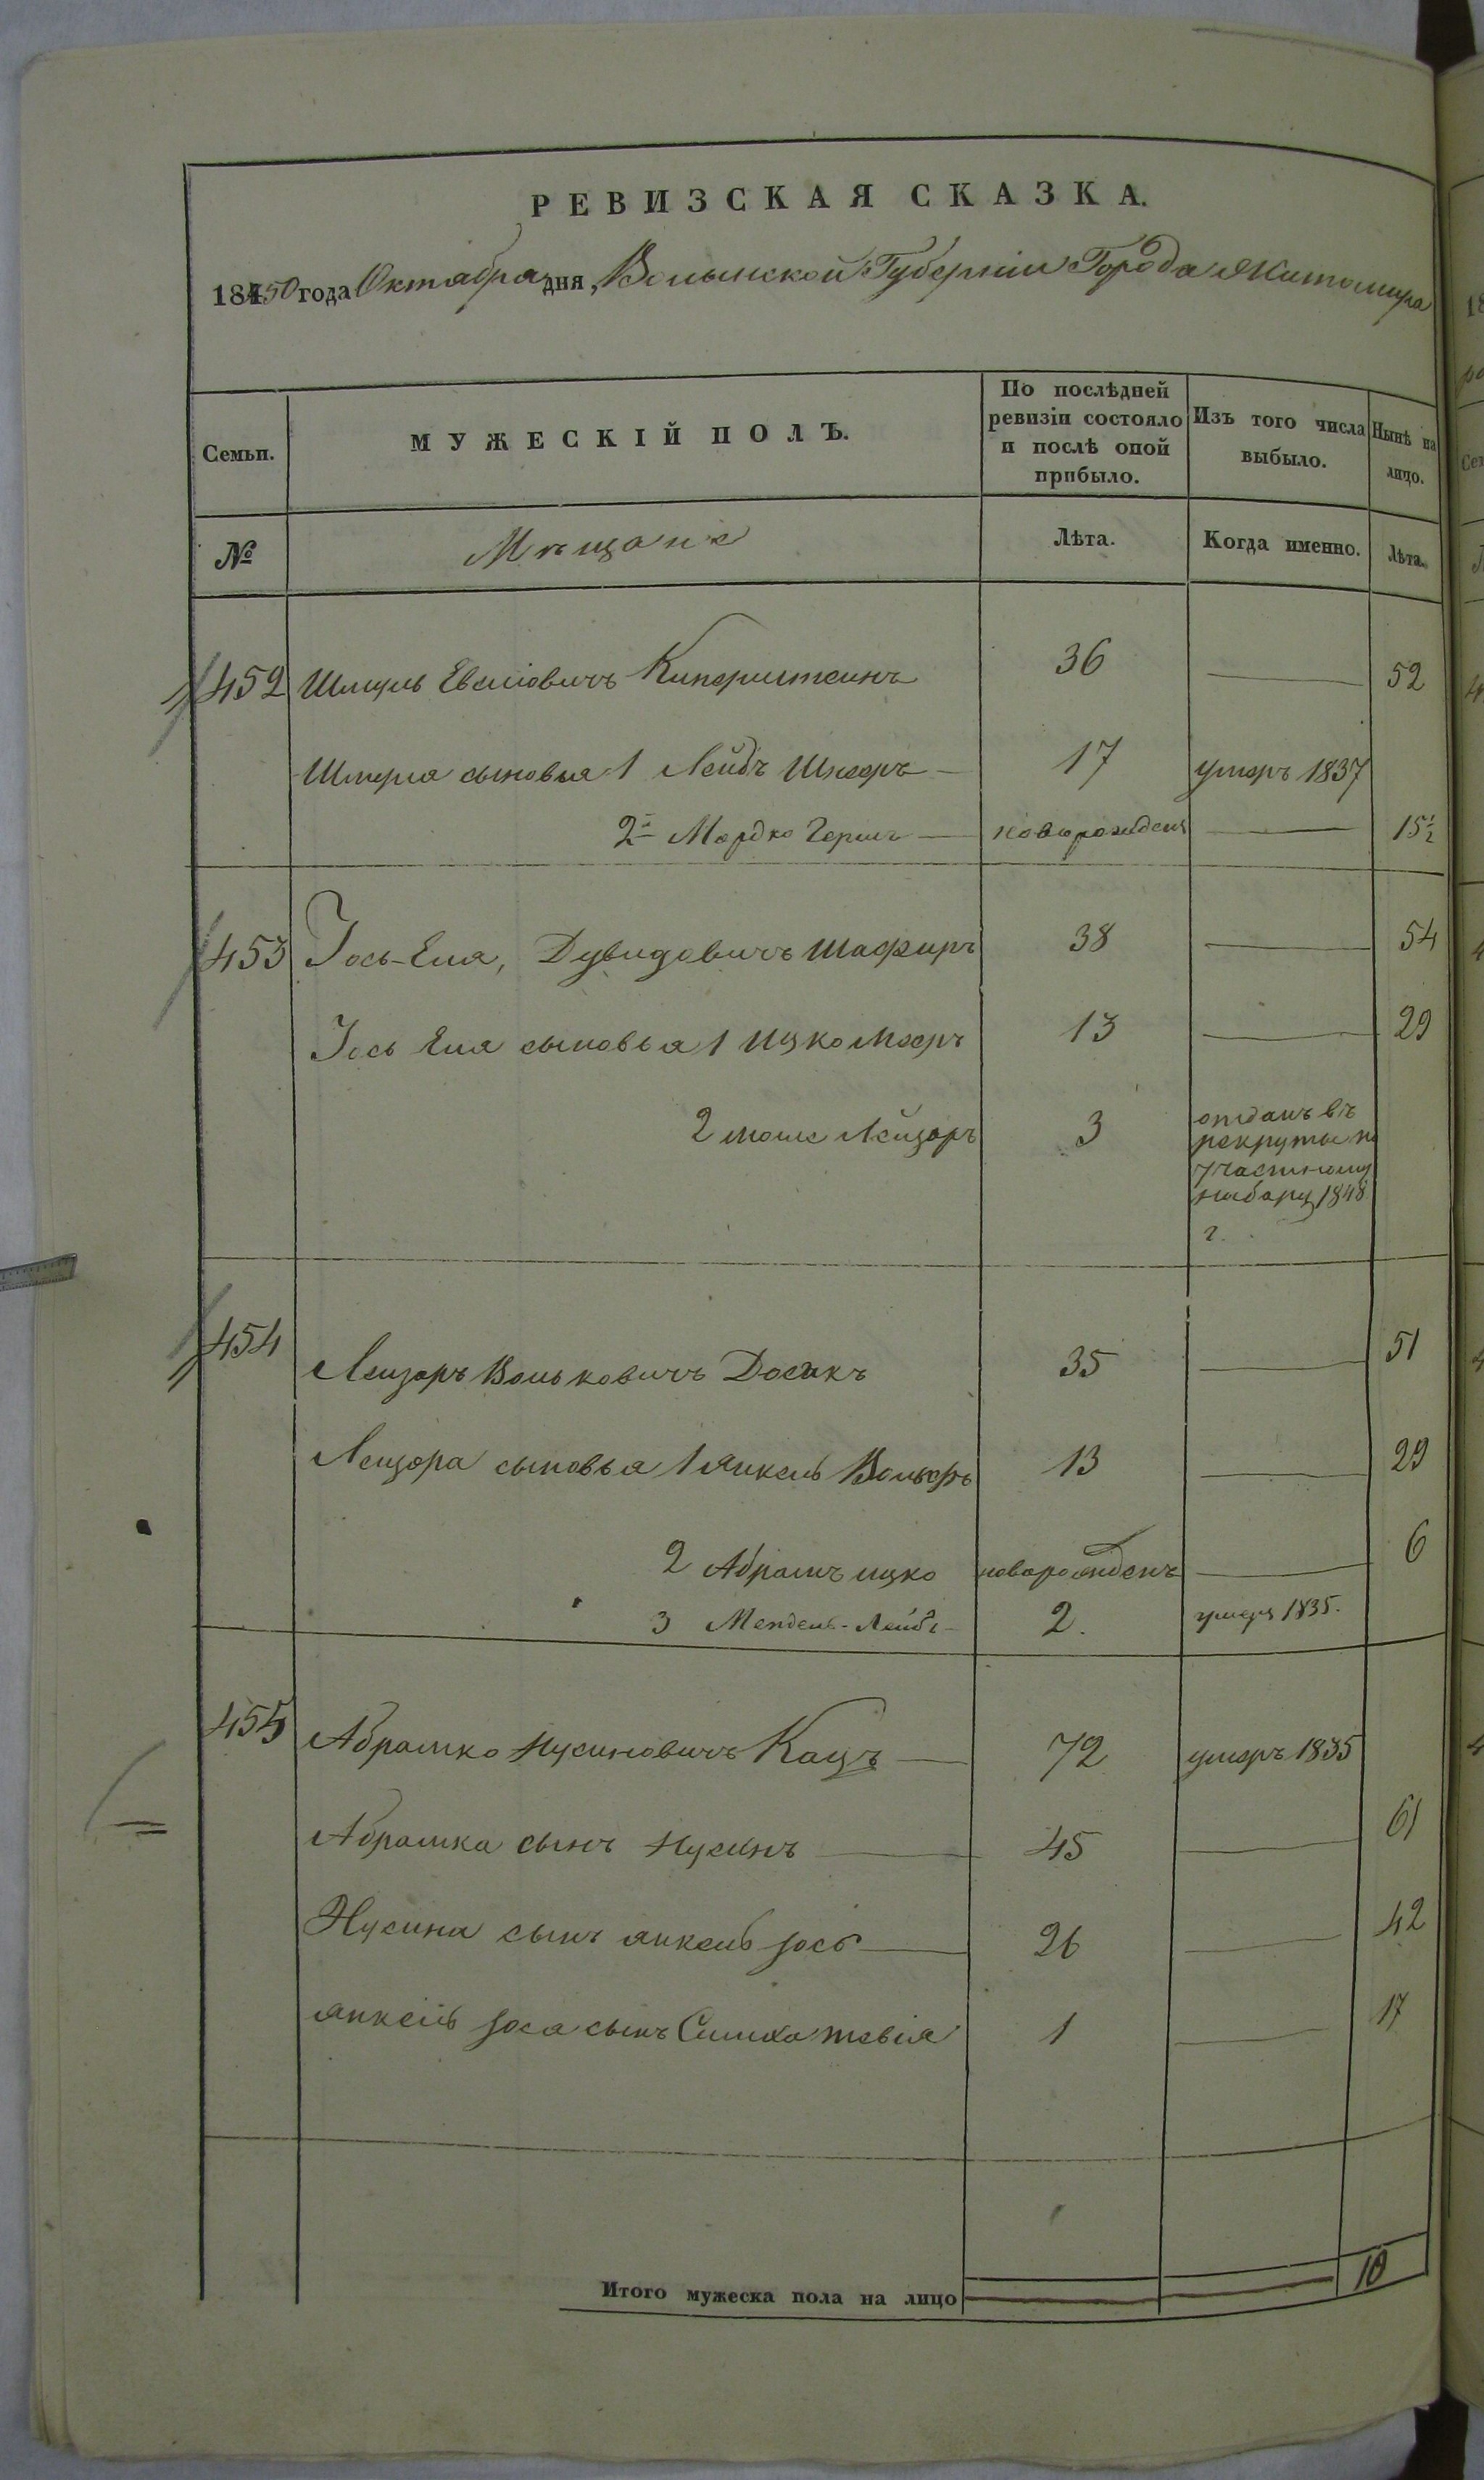 РЕВИЗСКАЯ СКАЗКА.
1850 года Октября дня, Волынской Губерніи Города Житомира
Семьи.
МУЖЕСКІЙ ПОЛЪ.
По послѣдней ревизіи состояло и послѣ оной прибыло.
Изъ того числа выбыло.
Нынѣ на лицо.
№
Мѣщане
Лѣта.
Когда именно.
Лѣта.
452 Шмуль Евсіовичъ Киперштеинъ 36 52
Шмуля сыновья 1 Лейбъ Шнееръ 17 умеръ 1837
2й Мордко Гершъ новорожденъ 15½
453 Іось-Еля, Дувидовичъ Шафиръ 38 54
Іось Еля сыновья 1 Ицко Мееръ 13 29
2 Моше Лейзоръ 3 отданъ въ
рекруты по
участному
набору 1848
г.
454 Лейзоръ Вольковичъ Досикъ 35 51
Лейзора сыновья 1 Янкель Вольфъ 13 29
2 Абрамъ Ицко новорожденъ 6
3 Мендель-Лейбъ 2. умеръ 1835.
455 Абрамко Нусиновичъ Кацъ 72 умеръ 1835
Абрамка сынъ Нусинъ 45 61
Нусина сынъ Янкель Іось 26 42
Янкель Іося сынъ Симха Тевія 1 17
Итого мужеска пола на лицо 10